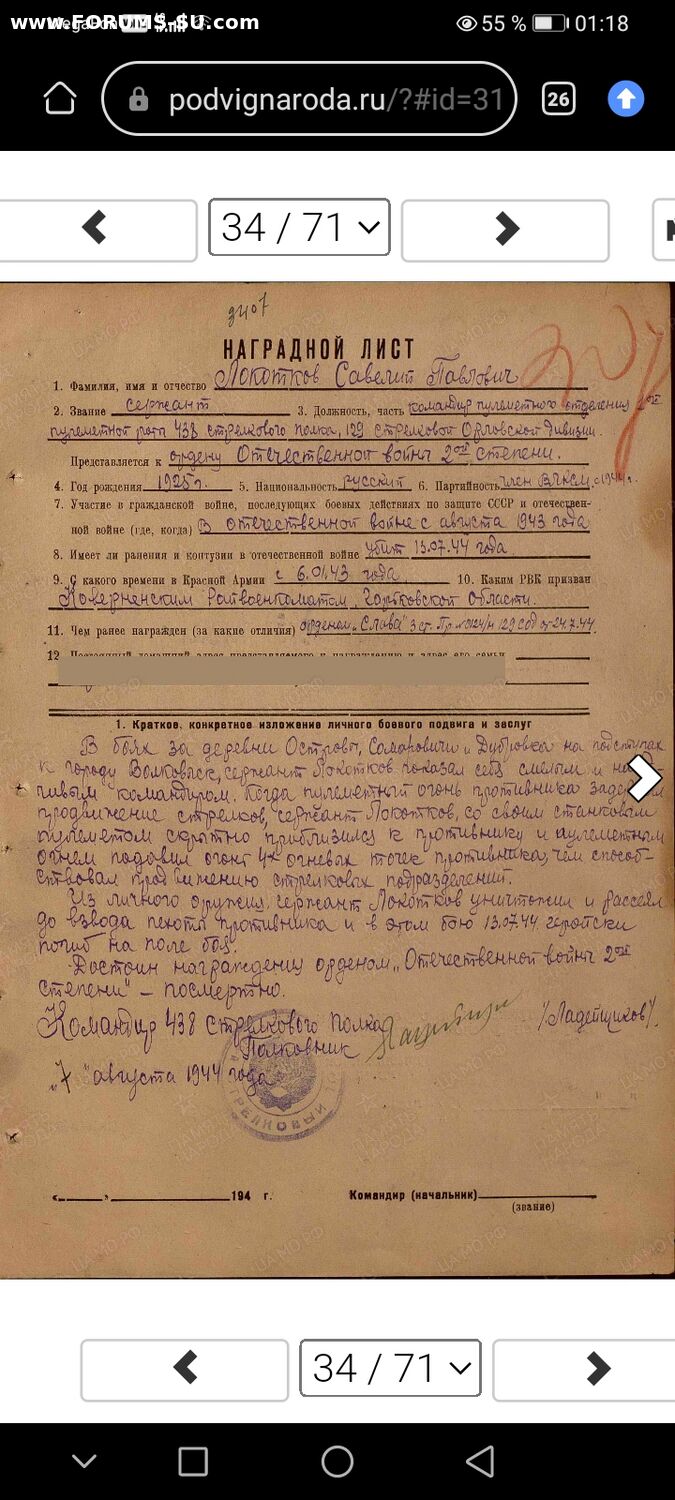 www.FORUMS-SU.com
55 %
01:18
podvignaroda.ru/?#id=31
26
34 / 71
3407
НАГРАДНОЙ ЛИСТ
1. Фамилия, имя и отчество Локотков Савелий Павлович
2. Звание сержант 3. Должность, часть командир пулеметного отделения 2ой
пулеметной роты 438 стрелкового полка, 129 стрелковой Орловской дивизии.
Представляется к ордену Отечественной войны 2ой степени.
4. Год рождения 1925г. 5. Национальность русский 6. Партийность член ВЛКСМ с 1944 г.
7. Участие в гражданской войне, последующих боевых действиях по защите СССР и отечествен-
ной войне (где, когда) В отечественной войне с августа 1943 года
8. Имеет ли ранения и контузии в отечественной войне убит 13.07.44 года.
9. С какого времени в Красной Армии с 6.01.43 года. 10. Каким РВК призван
Ковернинским Райвоенкоматом, Горьковской области.
11. Чем ранее награжден (за какие отличия) орденом „Слава" 3 ст. Пр. №0124/н 129 СОД от 24.7.44.
12. Постоянный домашний адрес представляемого к награждению и адрес его семьи
1. Краткое, конкретное изложение личного боевого подвига и заслуг
В боях за деревни Острово, Самаровичи и Дубровка на подступах
к городу Волковыск, сержант Локотков показал себя смелым и
чивым командиром. Когда пулеметный огонь противника
продвижение стрелков, сержант Локотков, со своим станковым
пулеметом скрытно приблизился к противнику и пулеметным
огнем подавил огонь 4х огневых точек противника, чем способ-
ствовал продвижению стрелковых подразделений.
Из личного оружия сержант Локотков уничтожил и рассеял
до взвода пехоты противника и в этом бою 13.07.44 геройски
погиб на поле боя.
Достоин награждения орденом „Отечественной войны 2ой
степени" – посмертно.
Командир 438 стрелкового полка
Полковник /Ладейщиков/.
„7" августа 1944 года
СТРЕЛКОВЫЙ
«___» ___ 194 г. Командир (начальник)
(звание)
34 / 71